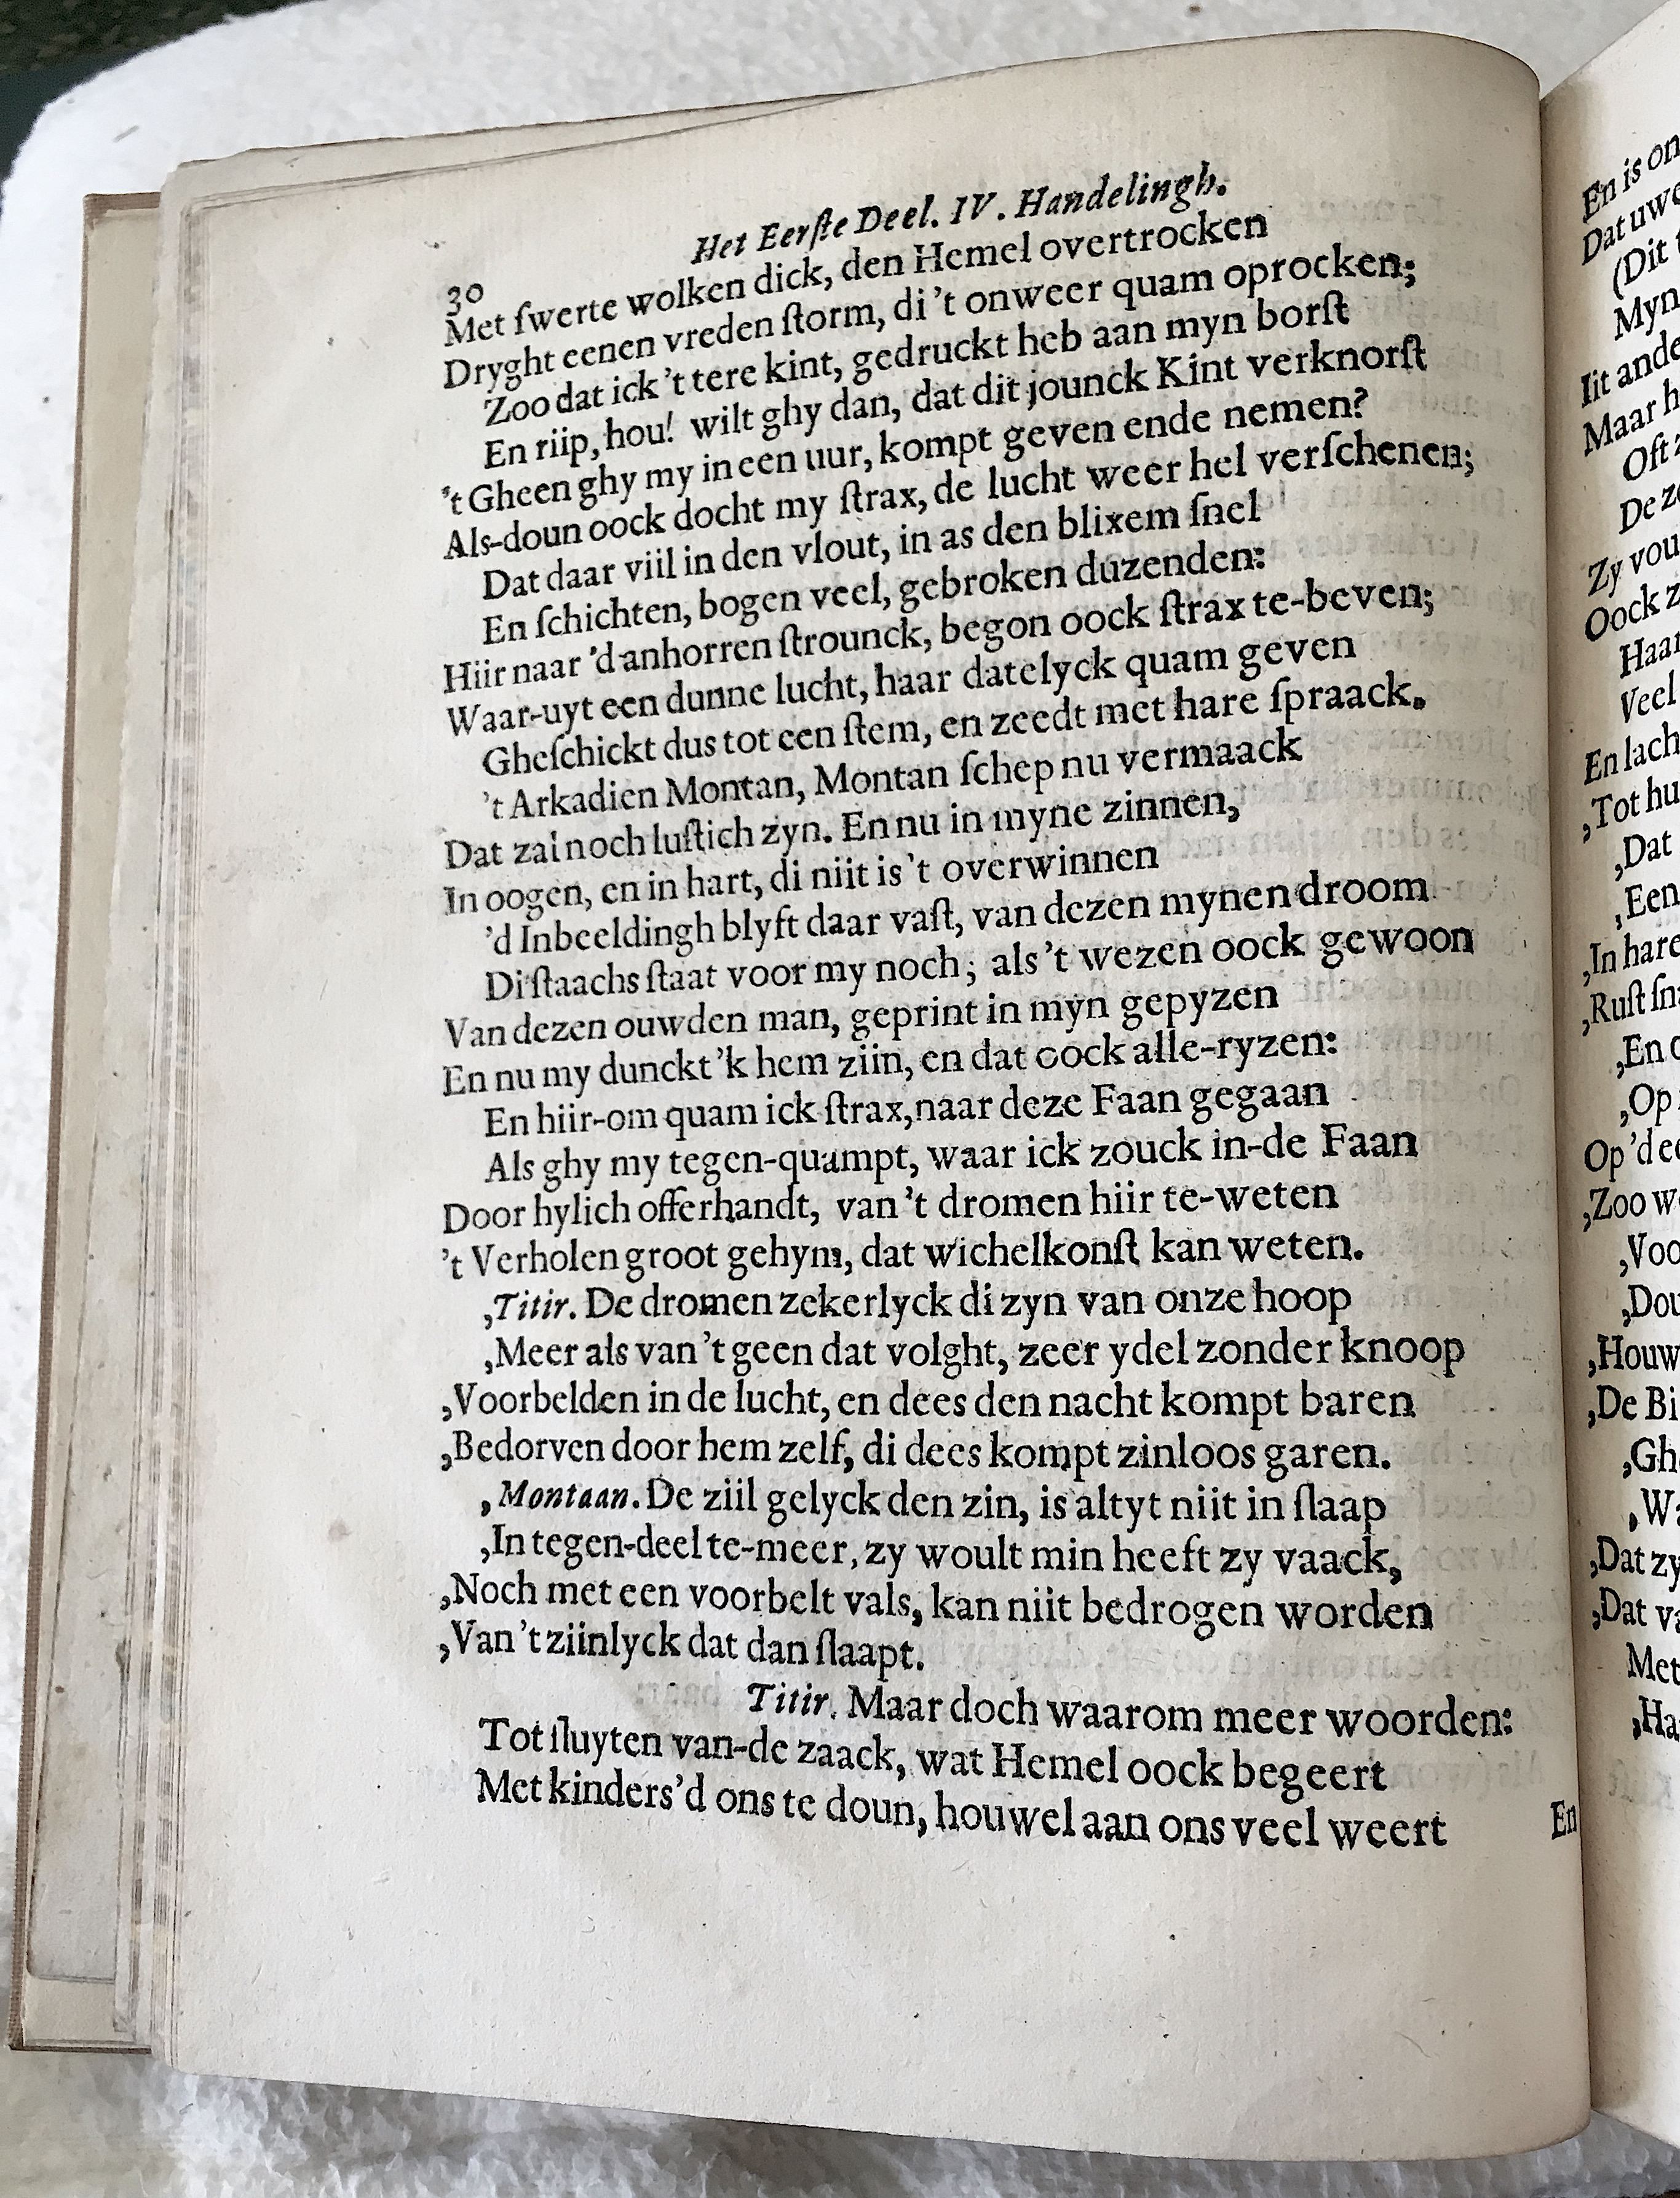 30
Het Eerſte Deel. IV. Handelingh.
Met ſwerte wolken dick, den Hemel overtrocken
Dryght eenen vreden ſtorm, di 't onweer quam oprocken;
Zoo dat ick 't tere kint, gedruckt heb aan myn borſt
En riip, hou! wilt ghy dan, dat dit jounck Kint verknorſt
't Gheen ghy my in een uur, kompt geven ende nemen?
Als-doun oock docht my ſtrax, de lucht weer hel verſchenen;
Dat daar viil in den vlout, in as den blixem ſnel
En ſchichten, bogen veel, gebroken duzenden:
Hiir naar 'd anhorren ſtrounck, begon oock ſtrax te-beven;
Waar-uyt een dunne lucht, haar datelyck quam geven
Gheſchickt dus tot een ſtem, en zeedt met hare ſpraack.
't Arkadien Montan, Montan ſchep nu vermaack
Dat zal noch luſtich zyn. En nu in myne zinnen,
In oogen, en in hart, di niit is 't overwinnen
'd Inbeeldingh blyft daar vaſt, van dezen mynen droom
Di ſtaachs ſtaat voor my noch; als 't wezen oock gewoon
Van dezen ouwden man, geprint in myn gepyzen
En nu my dunckt 'k hem ziin, en dat oock alle-ryzen:
En hiir-om quam ick ſtrax, naar deze Faan gegaan
Als ghy my tegen-quampt, waar ick zouck in-de Faan
Door hylich offerhandt, van 't dromen hiir te-weten
't Verholen groot gehym, dat wichelkonſt kan weten.
,Titir. De dromen zekerlyck di zyn van onze hoop
,Meer als van 't geen dat volght, zeer ydel zonder knoop
,Voorbelden in de lucht, en dees den nacht kompt baren
,Bedorven door hem zelf, di dees kompt zinloos garen.
,Montaan. De ziil gelyck den zin, is altyt niit in ſlaap
,In tegen-deel te-meer, zy woult min heeft zy vaack,
,Noch met een voorbelt vals, kan niit bedrogen worden
,Van 't ziinlyck dat dan ſlaapt.
Titir. Maar doch waarom meer woorden:
Tot ſluyten van-de zaack, wat Hemel oock begeert
Met kinders 'd ons te doun, houwel aan ons veel weert
En
En is
Dat
(Dit
Myn
Maar
De
Zy
Oock
Veel
En lach
,Tot
,Dat
,Een
,In hare
,Ruſt
,En
,Op
Op 'd
,Zoo
,De
,Dat zy
,Dat
Met